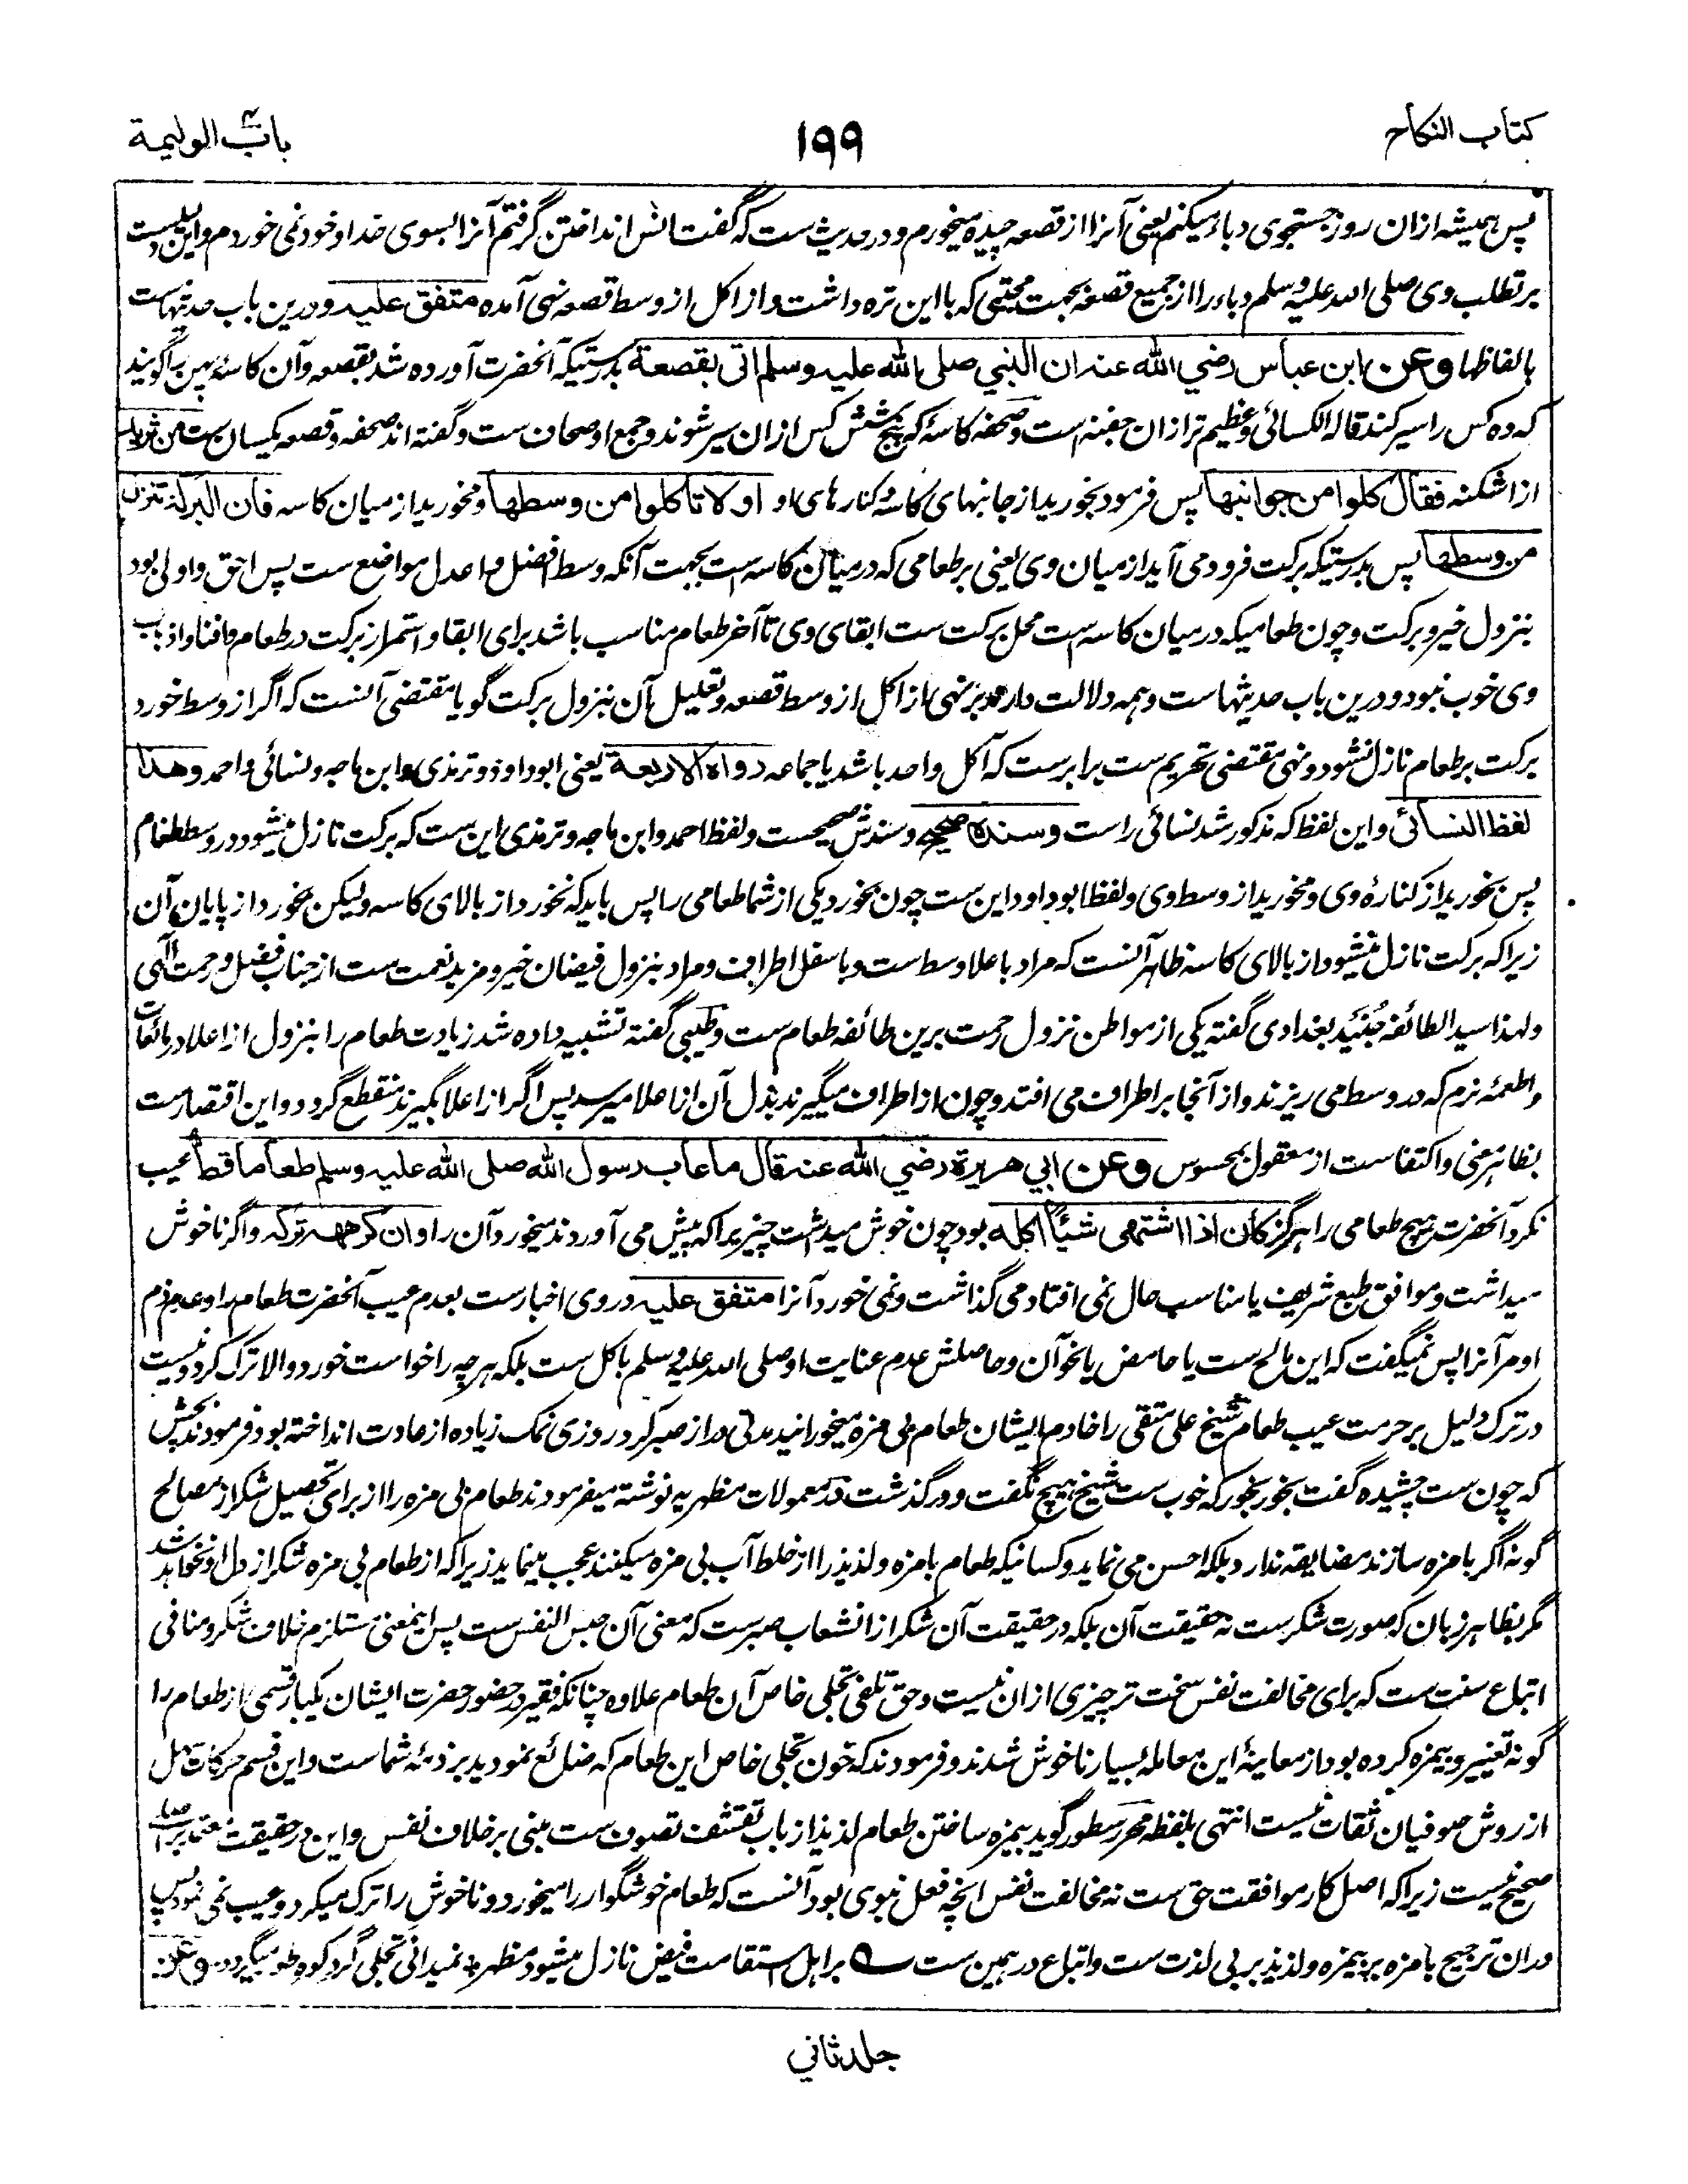 كتاب النكاح
١٩٩
باب الوليمة
پس همیشه ازان روز جستجوی دباء میکنم یعنی آنرا از قصعه چیده میخورم و در حدیث ست که گفت انس انداختن گرفتم آنرا بسوی خدا و خود نمی خوردم و این
بر تطلب وی صلی الله علیه وسلم دباء را از جمیع قصعه بجهت محبتی که با این تره داشت و از اکل از وسط قصعه نهی آمده متفق عليه و درین باب حدیثهاست
بالفاظها وعن ابن عباس رضي الله عنه ان النبي صلى الله عليه وسلم اتى بقصعة بدرستیکه آنحضرت آورده شد بقصعه و آن کاسهٔ پهن را گویند
که ده کس را سیر کند قاله الکسائی و عظیم تر ازان جفنه است و صحفه کاسهٔ که پنج شش کس ازان سیر شوند و جمع او صحاف ست و گفته اند صحفه و قصعه یکسان ست من ثريد
از اشکنه فقال كلوا من جوانبها پس فرمود بخورید از جانبهای کاسه و کنارهای او ولا تاكلوا من وسطها و مخورید از میان کاسه فان البركة تنزل
من وسطها پس بدرستیکه برکت فرود می آید از میان وی یعنی بر طعامی که در میان کاسه است بجهت آنکه وسط افضل و اعدل مواضع ست پس احق و اولی بود
بنزول خیر و برکت و چون طعامیکه در میان کاسه است محل برکت ست ابقای وی تا آخر طعام مناسب باشد برای ابقا و استمرار برکت در طعام و افنا و اذهاب
وی خوب نبود و درین باب حدیثهاست و همه دلالت دارد بر نهی از اکل از وسط قصعه و تعلیل آن بنزول برکت گویا مقتضی آنست که اگر از وسط خورد
برکت بر طعام نازل نشود و نهی مقتضی تحریم ست برابرست که آکل واحد باشد یا جماعه رواه الاربعة یعنی ابوداود و ترمذی و ابن ماجه و نسائی و احمد وهذا
لفظ النسائي و این لفظ که مذکور شد نسائی راست وسنده صحيح و سندش صحیح ست و لفظ احمد و ابن ماجه و ترمذی این ست که برکت نازل میشود در وسط طعام
پس بخورید از کنارهٔ وی و مخورید از وسط وی و لفظ ابوداود این ست چون بخورد یکی از شما طعامی را پس باید که نخورد از بالای کاسه ولیکن بخورد از پایان آن
زیرا که برکت نازل میشود از بالای کاسه ظاهر آنست که مراد باعلا وسط ست و باسفل اطراف و مراد بنزول فیضان خیر و مزید نعمت ست از جناب فضل و رحمت الهی
ولهذا سید الطائفه جُنَید بغدادی گفته یکی از مواطن نزول رحمت برین طائفه طعام ست و طیبی گفته تشبیه داده شد زیادت طعام را بنزول از اعلا در مائعات
و اطعمهٔ نرم که در وسط می ریزند و از آنجا بر اطراف می افتد و چون از اطراف میگیرند بذل آن از اعلا میرسد پس اگر از اعلا بگیرند منقطع گردد و این اقتصارست
بظاهر معنی و اکتفاست از معقول بمحسوس وعن ابي هريرة رضي الله عنه قال ما عاب رسول الله صلى الله عليه وسلم طعاما قط عیب
نکرد آنحضرت هیچ طعامی را هرگز كان اذا اشتهى شيئا اكله بود چون خوش میداشت چیزیرا که پیش می آوردند میخورد آن را وان كرهه تركه و اگر ناخوش
میداشت و موافق طبع شریف یا مناسب حال نمی افتاد می گذاشت و نمی خورد آنرا متفق عليه در وی اخبارست بعدم عیب آنحضرت طعام را و عدم ذم
او مر آنرا پس نمیگفت که این مالح ست یا حامض یا نحو آن و حاصلش عدم عنایت او صلی الله علیه وسلم باکل ست بلکه هرچه را خواست خورد و الا ترک کرد و نیست
در ترک دلیل بر حرمت عیب طعام شیخ علی متقی را خادم ایشان طعام بی مزه میخورانید مدتی دراز صبر کرد روزی نمک زیاده از عادت انداخته بود فرمودند بچش
که چون ست چشیده گفت بخور بخور که خوب ست شیخ هیچ نگفت و درگذشت در معمولات مظهریه نوشته میفرمودند طعام بی مزه را از برای تحصیل شکر از مصالح
گونه اگر بامزه سازند مضایقه ندارد بلکه احسن می نماید و کسانیکه طعام بامزه و لذیذ را از خلط آب بی مزه میکنند عجب مینماید زیرا که از طعام بی مزه شکر از دل او نخواهد شد
مگر بظاهر زبان که صورت شکرست نه حقیقت آن بلکه در حقیقت آن شکر از انشعاب صبرست که معنی آن حبس النفس ست پس اینمعنی مستلزم خلاف شکر و منافی
اتباع سنت ست که برای مخالفت نفس سخت تر چیزی ازان نیست و حق تلفی تجلی خاص آن طعام علاوه چنانکه فقیر در حضور حضرت ایشان یکبار قسمی از طعام را
گونه تغییر و بیمزه کرده بود از معاینهٔ این معامله بسیار ناخوش شدند و فرمودند که خون تجلی خاص این طعام که ضائع نمودید بر ذمهٔ شماست و این قسم حرکات
از روش صوفیان ثقات نیست انتهی بلفظه محرر سطور گوید بیمزه ساختن طعام لذیذ از باب تقشف تصوف ست مبنی بر خلاف نفس و این در حقیقت
صحیح نیست زیرا که اصل کار موافقت حق ست نه مخالفت نفس انچه فعل نبوی بود آنست که طعام خوشگوار را میخورد و ناخوش را ترک میکرد و عیب نمی نمود پس
دران ترجیح بامزه بر بیمزه و لذیذ بر بی لذت ست و اتباع در همین ست ے بر اهل استقامت فیض نازل میشود مظهر ٭ نمیدانی تجلی گرد کوه طور میگردد وعن
جلد ثاني